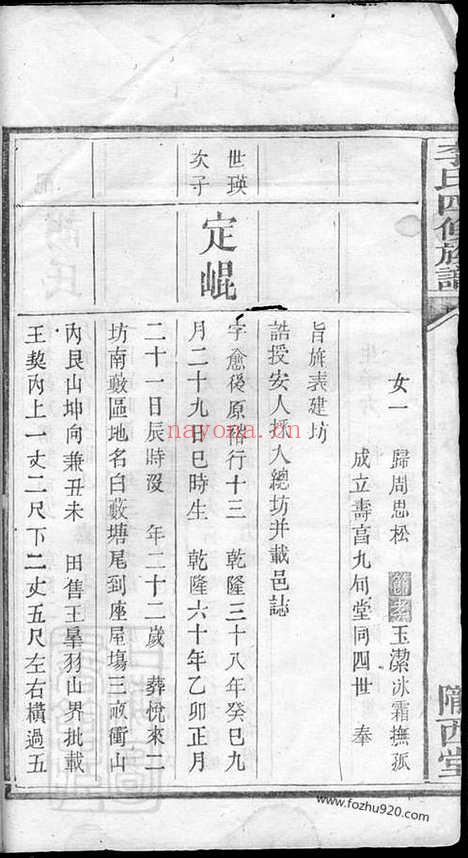 李氏四修族譜
隴西堂
女一　歸周思松　節孝玉潔冰霜撫孤
成立壽富九旬堂同四世　奉
旨旌表建坊
誥授安人採入總坊并載邑誌
世瑛
次子
定崐
字愈後原脩行十三　乾隆三十八年癸巳九
月二十九日巳時生　乾隆六十年乙卯正月
二十一日辰時沒　年二十二歲　葬悅來二
坊南數區地名白數塘尾到座屋塲三畝衝山
內艮山坤向兼丑未　田售王羣羽山界批載
王契內上一丈二尺下二丈五尺左右橫過五
nayona.cn
www.fozhu920.com